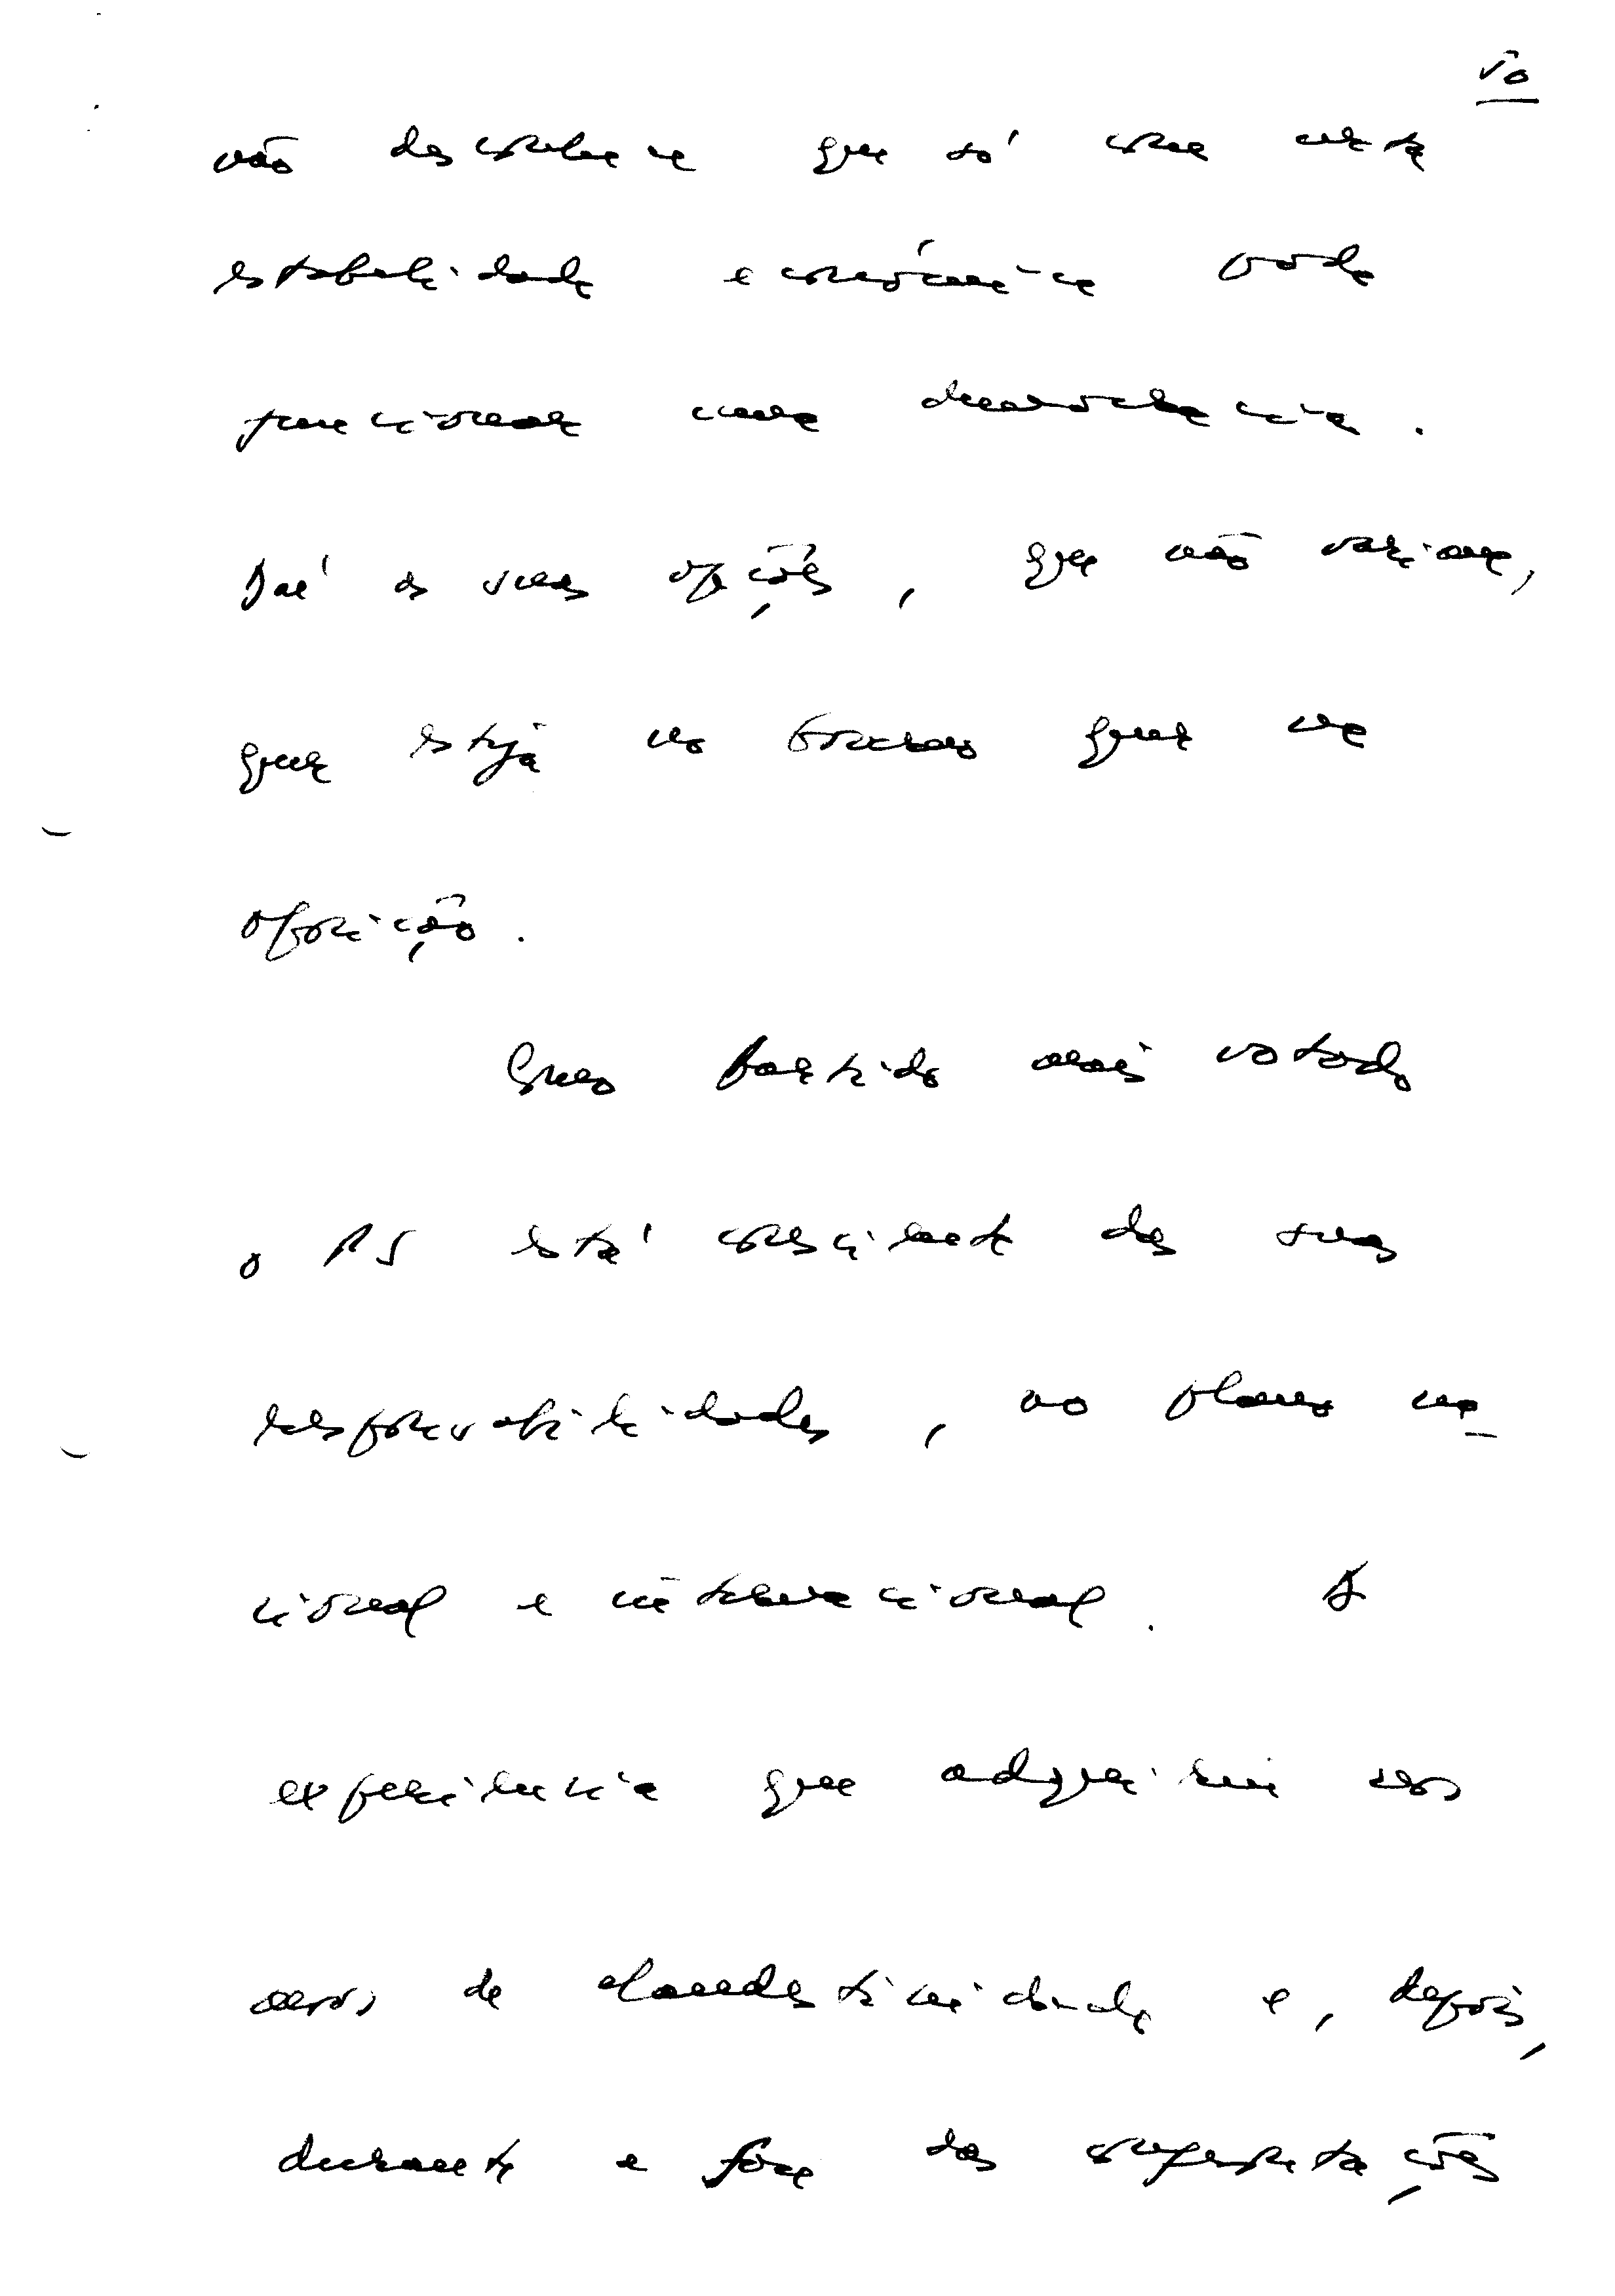 não desconhece que só com certa
estabilidade económica pode
funcionar uma democracia.
Daí as suas opções, que não variam,
quer esteja no Governo quer na
oposição.
Como partido mais votado
o PS está consciente das suas
responsabilidades, no plano na-
cional e internacional. A
experiência que adquiriu nos
anos de clandestinidade e, depois,
durante a fase das